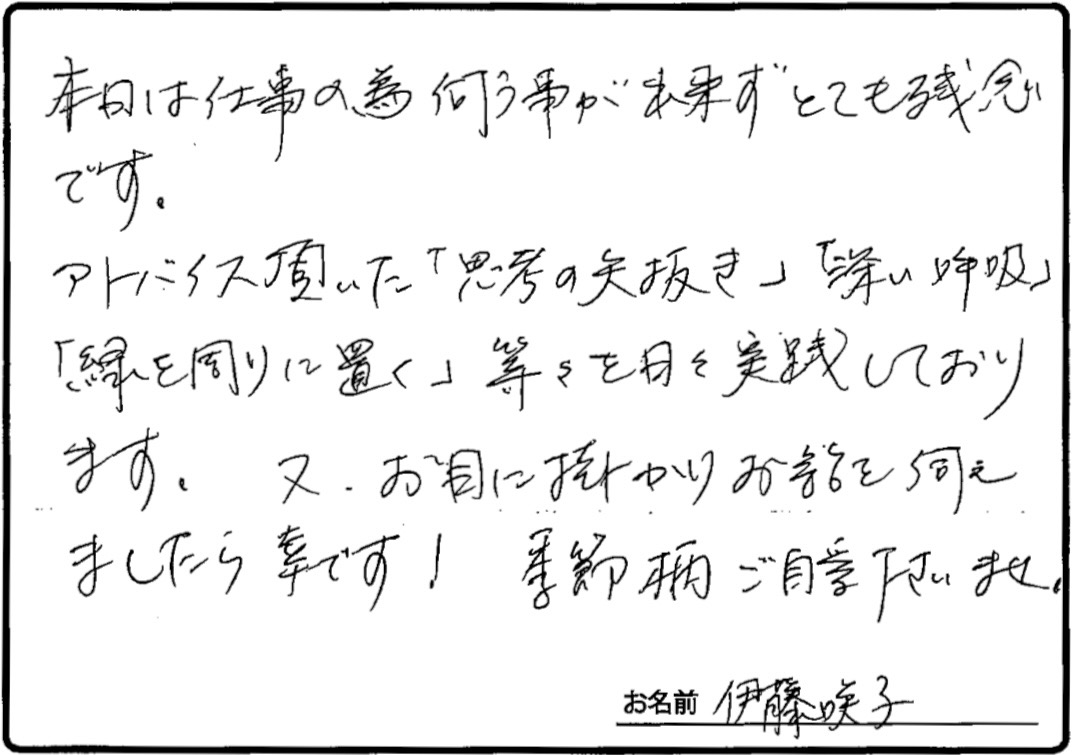 本日は仕事の為 伺う事が出来ずとても残念
です。
アドバイス頂いた「思考の矢抜き」「深い呼吸」
「緑を周りに置く」等々を日々実践しており
ます。 又、お目に掛かりお話を伺え
ましたら幸です! 季節柄 ご自愛下さいませ。
お名前 伊藤咲子